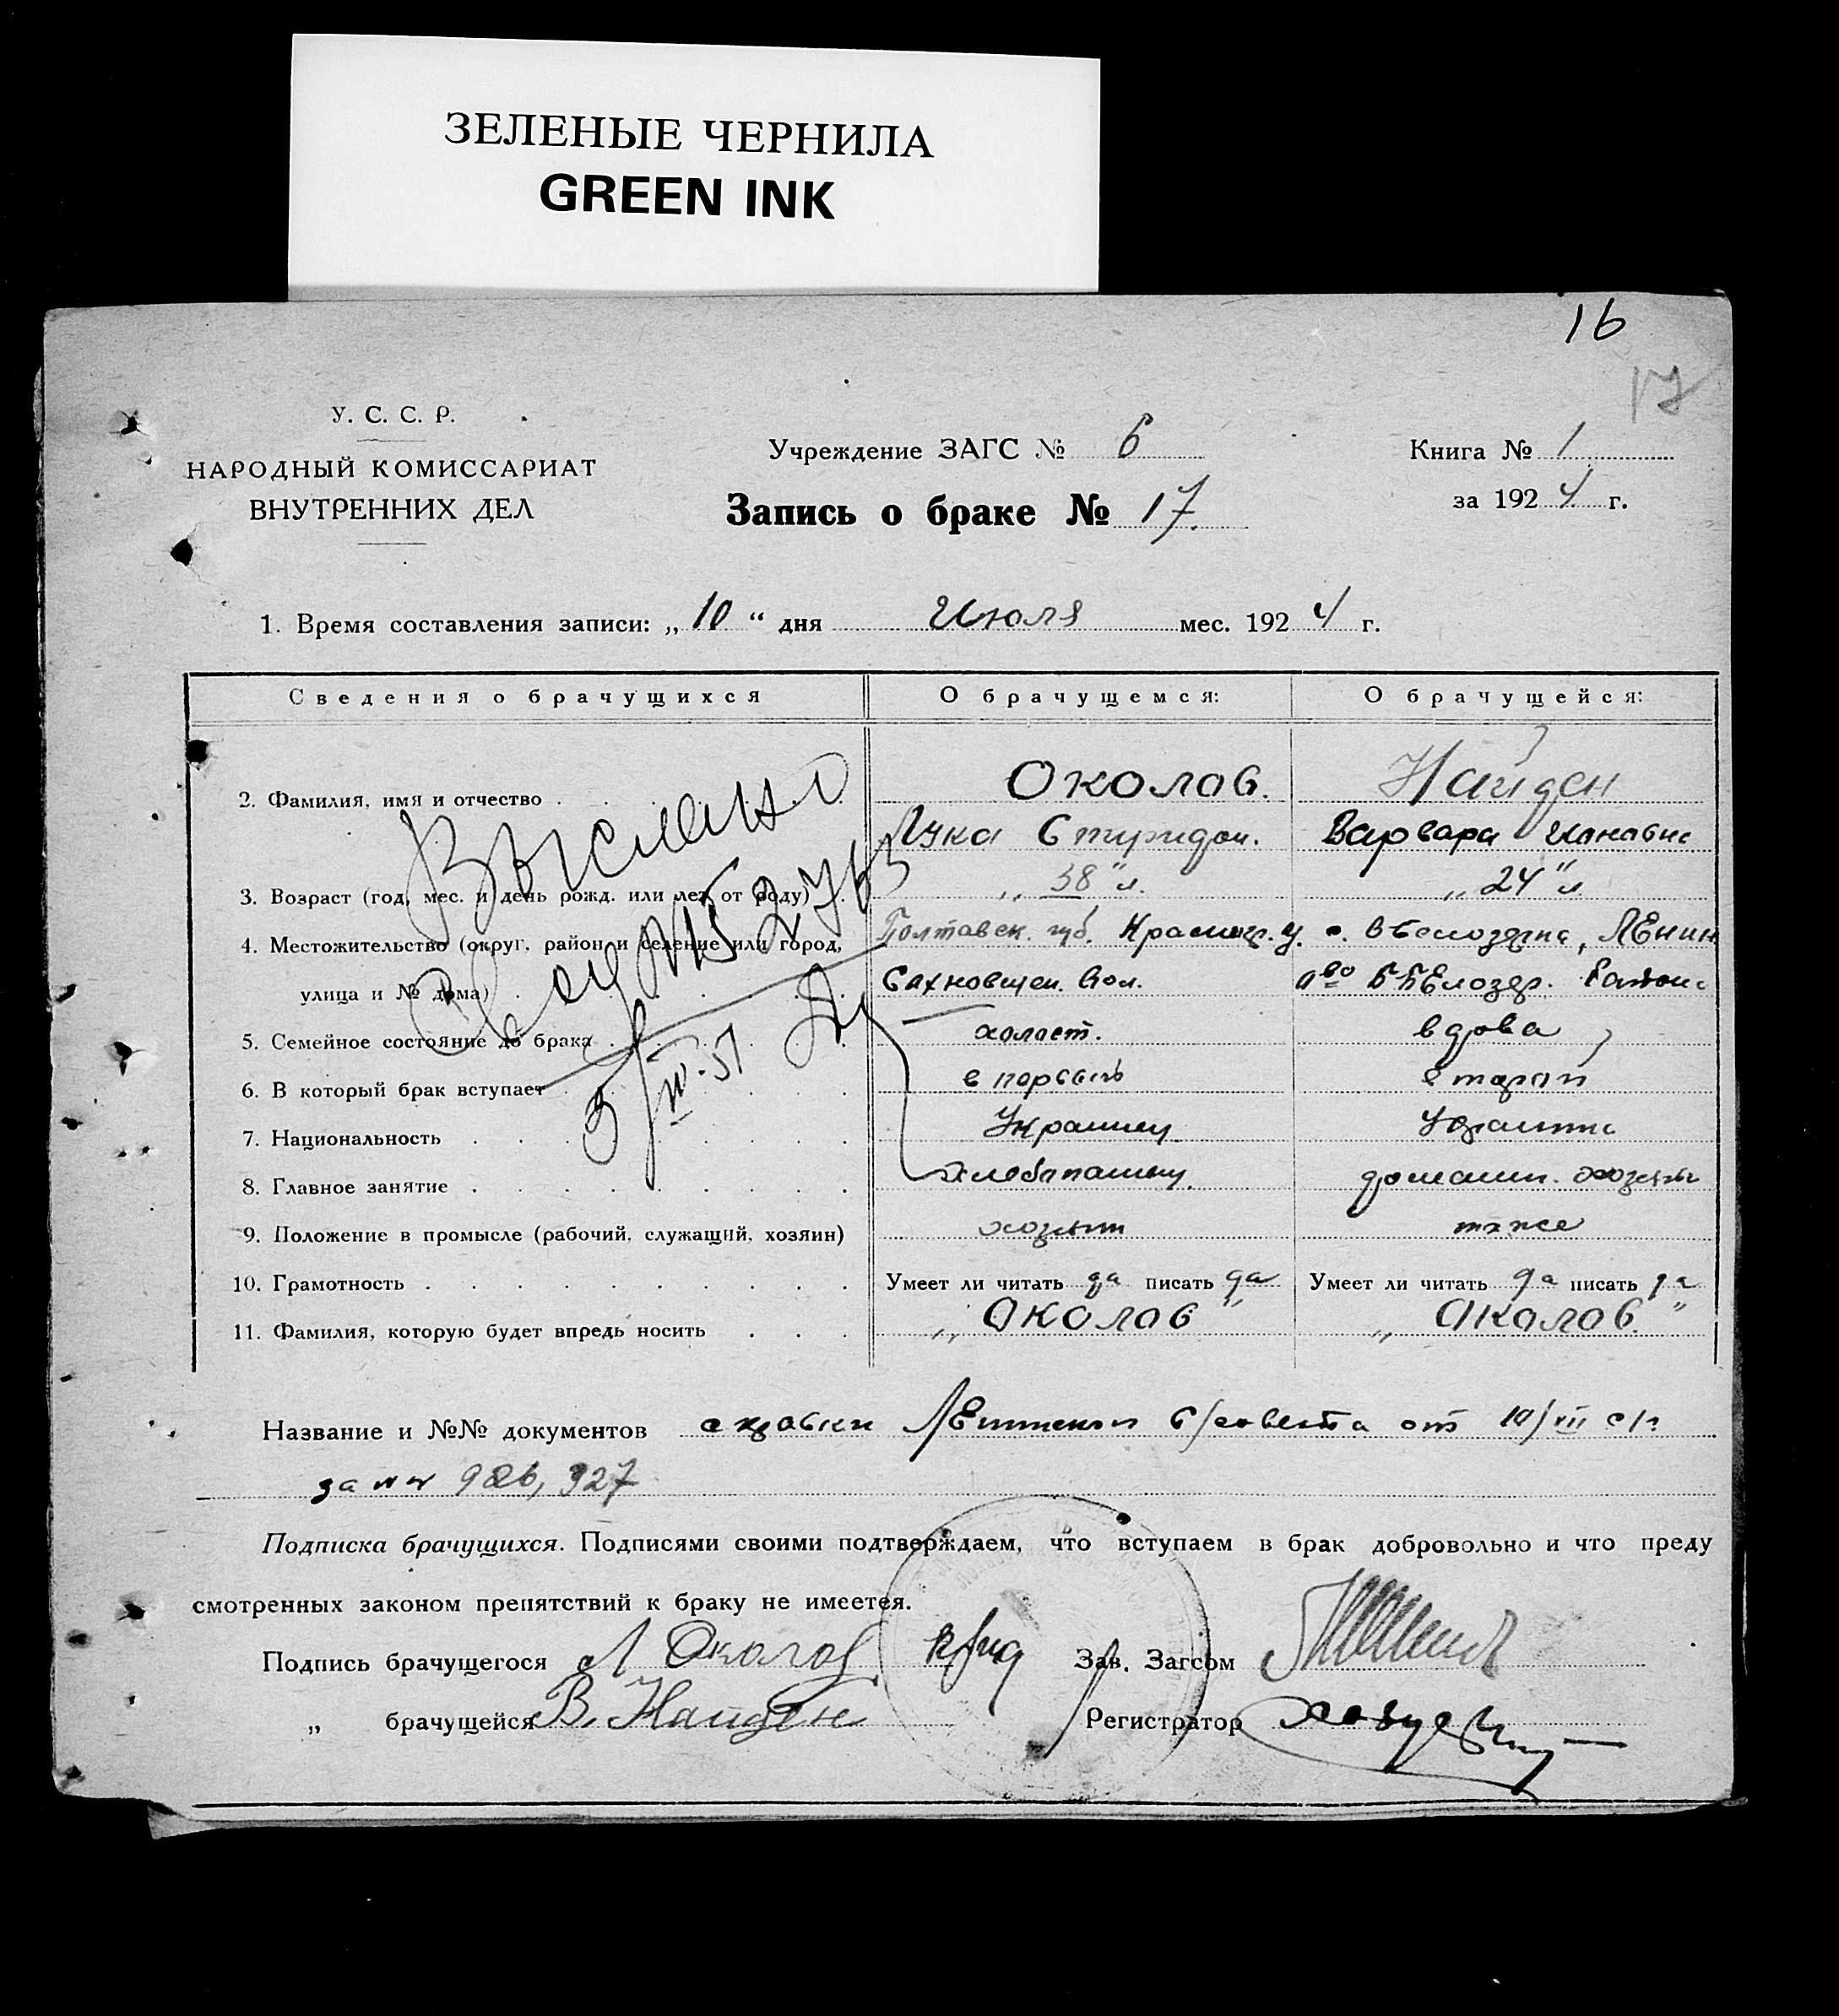 ЗЕЛЕНЫЕ ЧЕРНИЛА
GREEN INK
16
17
У. С. С. Р.
НАРОДНЫЙ КОМИССАРИАТ
ВНУТРЕННИХ ДЕЛ
Учреждение ЗАГС № 6
Запись о браке № 17.
Книга № 1
за 1924 г.
1. Время составления записи: „10“ дня Июля мес. 1924 г.
Сведения о брачущихся О брачущемся: О брачущейся:
2. Фамилия, имя и отчество Околов. Найден
Лука Спиридон. Варвара
3. Возраст (год, мес. и день рожд. или лет от роду) „38" л. „24" л.
4. Местожительство (округ, район и селение или город, Полтавск. губ. Красногр. у. с.
улица и № дома) Сахновщен. вол.
5. Семейное состояние до брака холост. вдова
6. В который брак вступает в первый
7. Национальность Украинец
8. Главное занятие хлебопашец домашн.
9. Положение в промысле (рабочий, служащий, хозяин) хозяин тоже
10. Грамотность Умеет ли читать да писать да Умеет ли читать да писать да
11. Фамилия, которую будет впредь носить „Околов" „Околов."
Выслано
Свид №
Название и №№ документов справки от 10/VII с/г
за №№ 926, 927
Подписка брачущихся. Подписями своими подтверждаем, что вступаем в брак добровольно и что преду
смотренных законом препятствий к браку не имеется.
Подпись брачущегося Л Околов Зав. Загсом
„ брачущейся В. Найден Регистратор